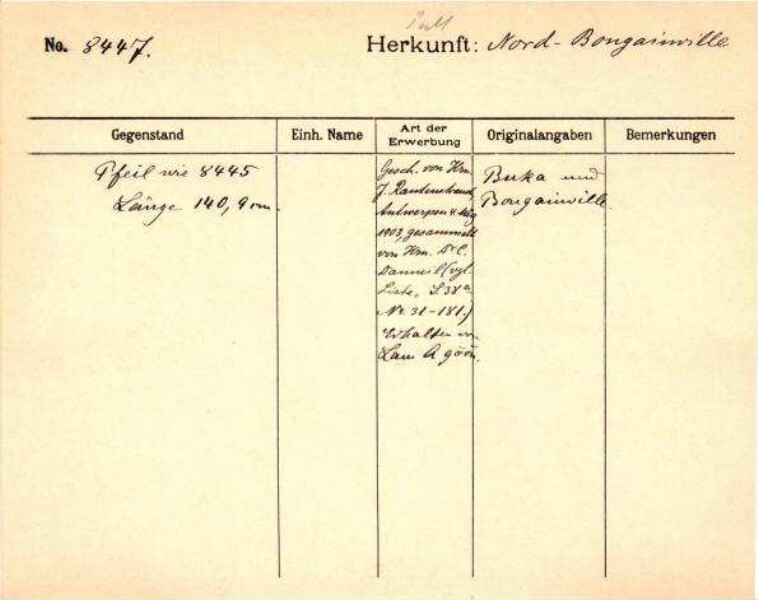 No. 8447.
Herkunft: Nord-Bougainville
Gegenstand
Einh. Name
Art der Erwerbung
Originalangaben
Bemerkungen
Pfeil wie 8445
Länge 140,9 cm.
Gesch. von Hrn.
J. Rautenstrauch,
Antwerpen 4. Aug.
1903, gesammelt
von Hrn. Dr C.
Danneil (vgl.
Liste, S.38a
No 31-181.)
Erhalten von
Lau A
Buka und
Bougainville.